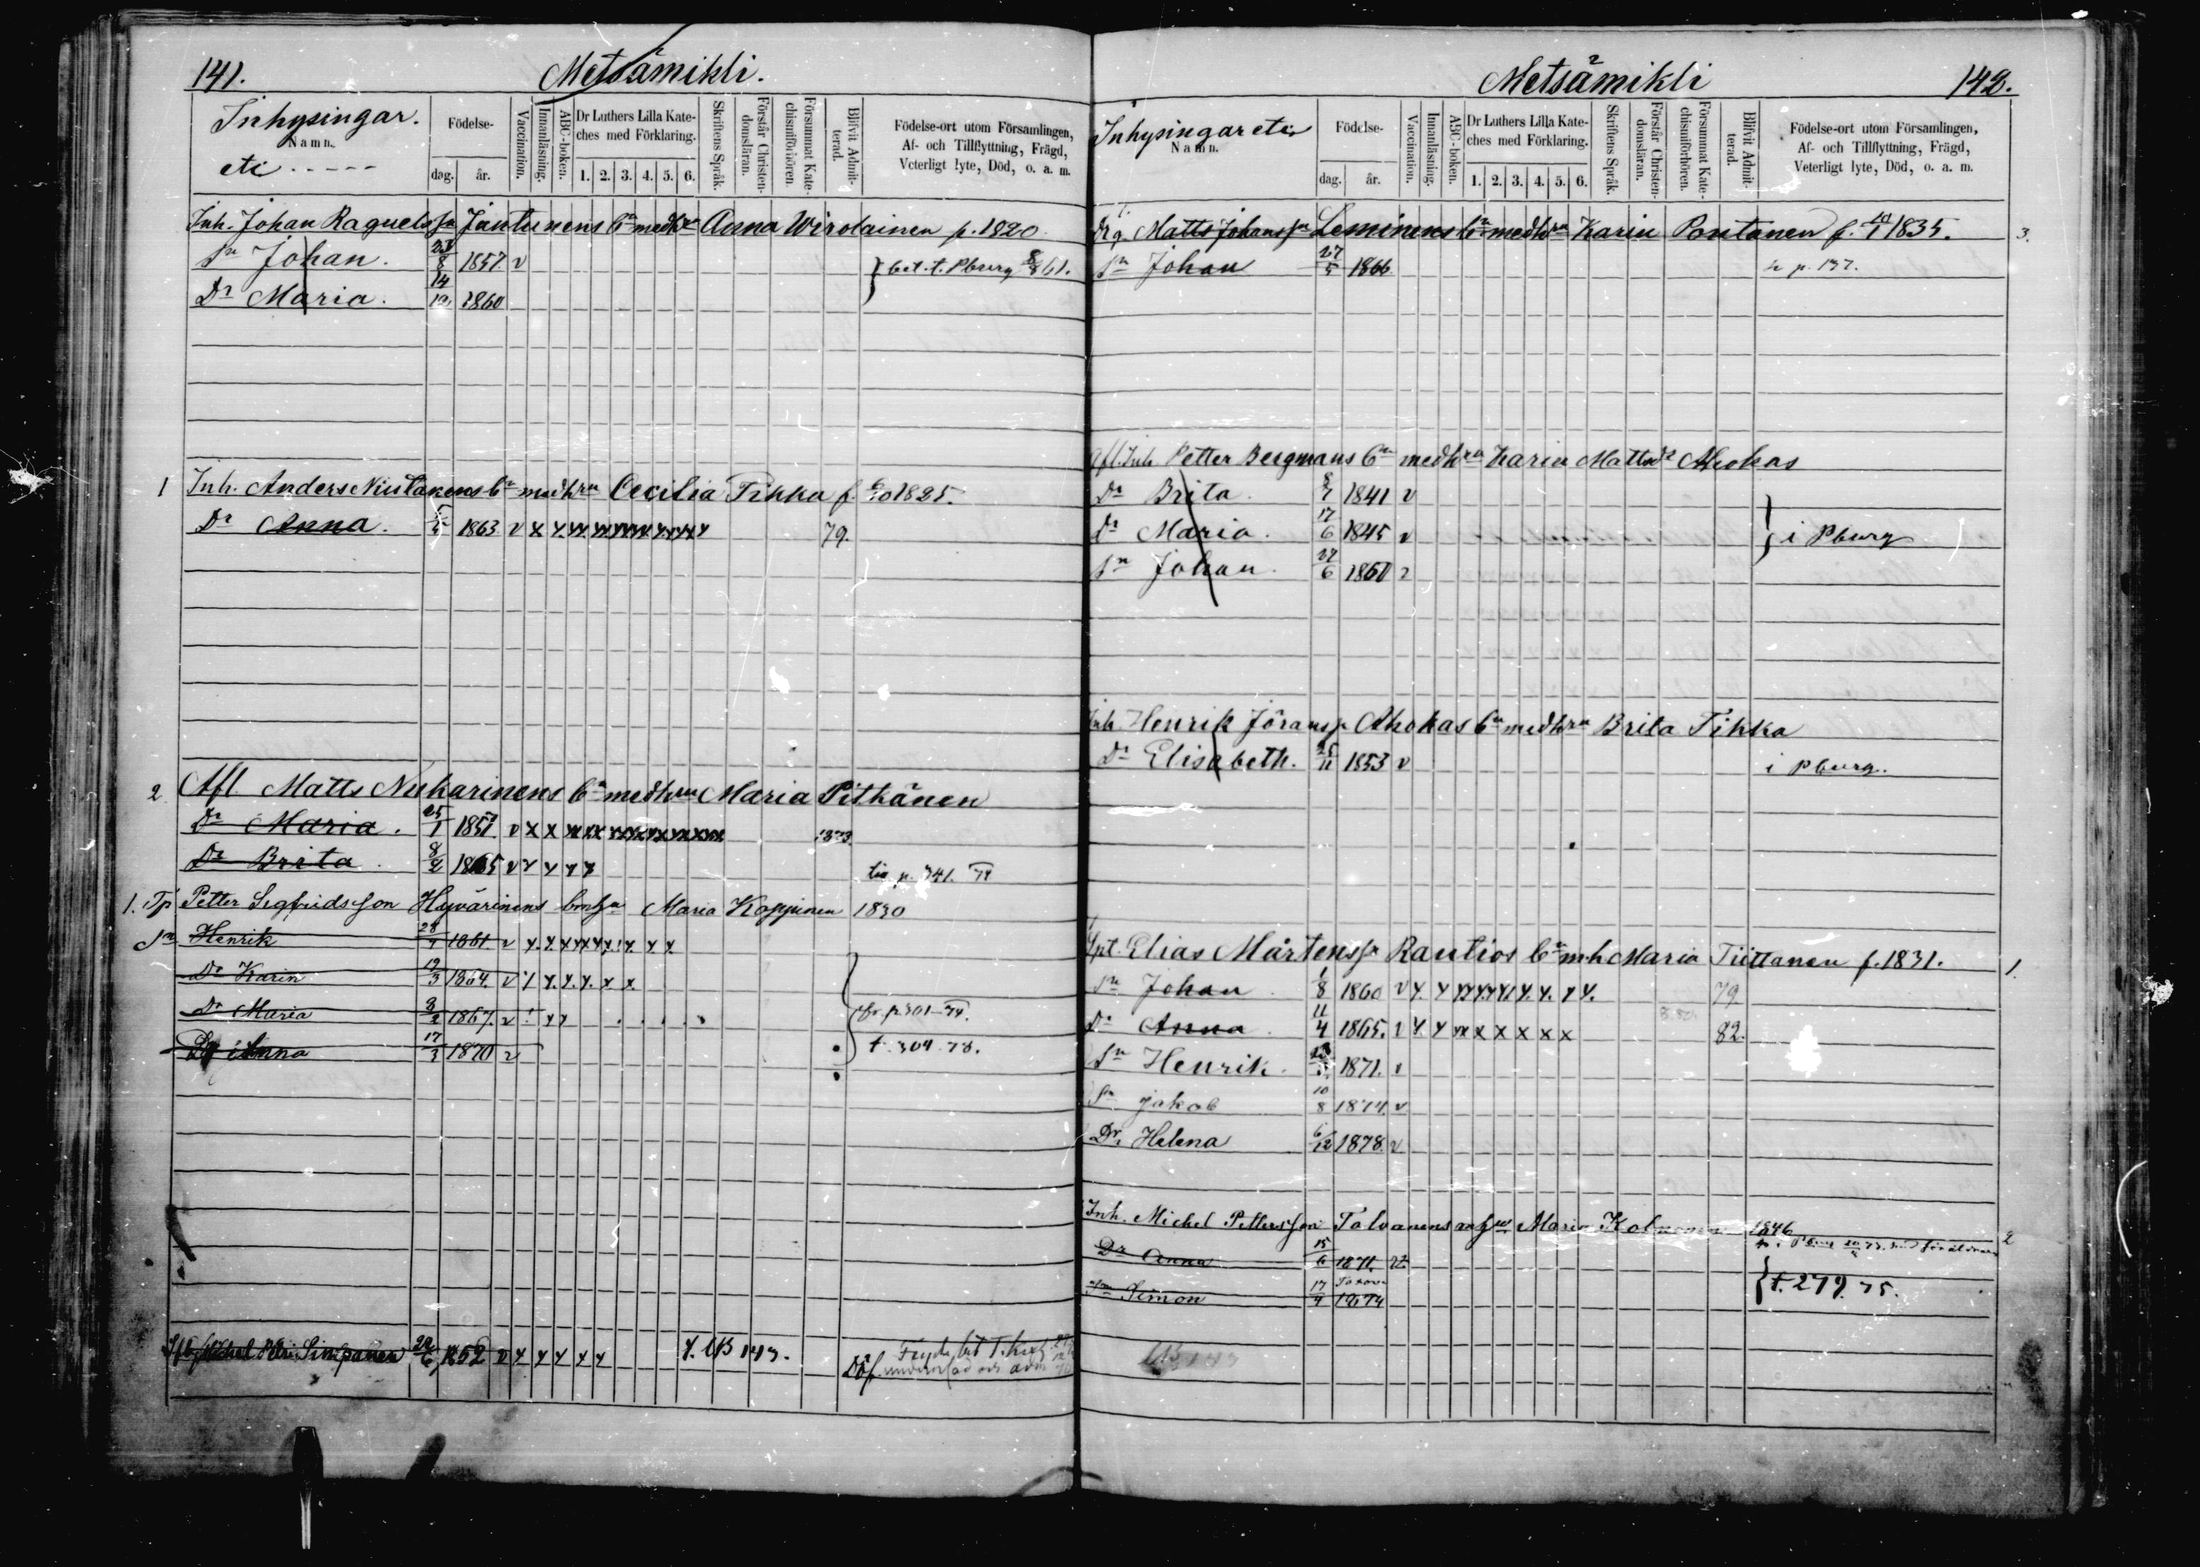 141.
Metsämikli.
Inhysingar.
Namn.
etc
Födelse-
dag.
år.
Vaccination.
Innanläsning.
ABC-boken.
Dr Luthers Lilla Kate-
ches med Förklaring.
1. 2. 3. 4. 5. 6.
Skriftens Språk.
Förstår Christen-
domsläran.
Försummat Kate-
chismiförhören.
Blifvit Admit-
terad.
Födelse-ort utom Församlingen,
Af- och Tillflyttning, Frägd,
Veterligt lyte, Död, o. a. m.
Inh. Johan Raguelssn Jantunens bn medhru Anna Wirolainen f. 1820
Sn Johan. 23/8 1857. v
bet. t. Pburg 8/8 61.
Dr Maria. 14/10 1860
1 Inh. Anders bn medhru Cecilia Tikka f. 6/10 1825.
Dr Anna. 1863 v x x xx xx 79.
2 Afl Matts Nukarinens bn medhru Maria Pitkänen
Dr Maria. 25/1 1857. v x x xx xx 1873
Dr Brita 8/2 1865 v x x x x
p. 341. 74
1. Tp Petter Sigfridsson Hyvärinens Maria Koppinen 1830
Sn Henrik 28/7 1861 v x x x x x x x
Dr Karin 19/3 1864. v x x x x x
Dr Maria 3/2 1867. v x x
fr. p 301-74.
Dr Anna 17/3 1870 v
t. 304. 78.
Michel Simpanen 24/6 1852 v x x x x x 143.
142.
Metsämikli
Inhysingar etc
Namn.
Födelse-
dag.
år.
Vaccination.
Innanläsning.
ABC-boken.
Dr Luthers Lilla Kate-
ches med Förklaring.
1. 2. 3. 4. 5. 6.
Skriftens Språk.
Förstår Christen-
domsläran.
Försummat Kate-
chismiförhören.
Blifvit Admit-
terad.
Födelse-ort utom Församlingen,
Af- och Tillflyttning, Frägd,
Veterligt lyte, Död, o. a. m.
Matts Johanssn Leminens bn medhru Karin Pontanen f. 10/1 1835. 3.
Sn Johan 27/5 1866 p. 137.
Afl. Inh Petter Bergmans bn medhru Karin Mattsdr Ahokas
Dr Brita. 8/7 1841 v
Dr Maria. 17/6 1845 v i Pburg
Sn Johan. 27/6 1860
Inh Henrik Göranss Ahokas bn medhru Brita Tikka
Dr Elisabeth. 25/11 1853 v i Pburg.
Spt. Elias Mårtenssn Rautios bn mh Maria Tiittanen f. 1831. 1.
Sn Johan 1/8 1860 v x x x x x x x x 79
Dr Anna. 11/4 1865. v x x xx x x x x x 82.
Sn Henrik. 1871. v
Sn Jakob 10/8 1874. v
Dr Helena 6/12 1878 v
Inh. Michel Pettersson Talvanens Maria 1846 2
Dr Anna 15/6 1871. v
Sn Simon 17/4 1874 t. 279. 75.